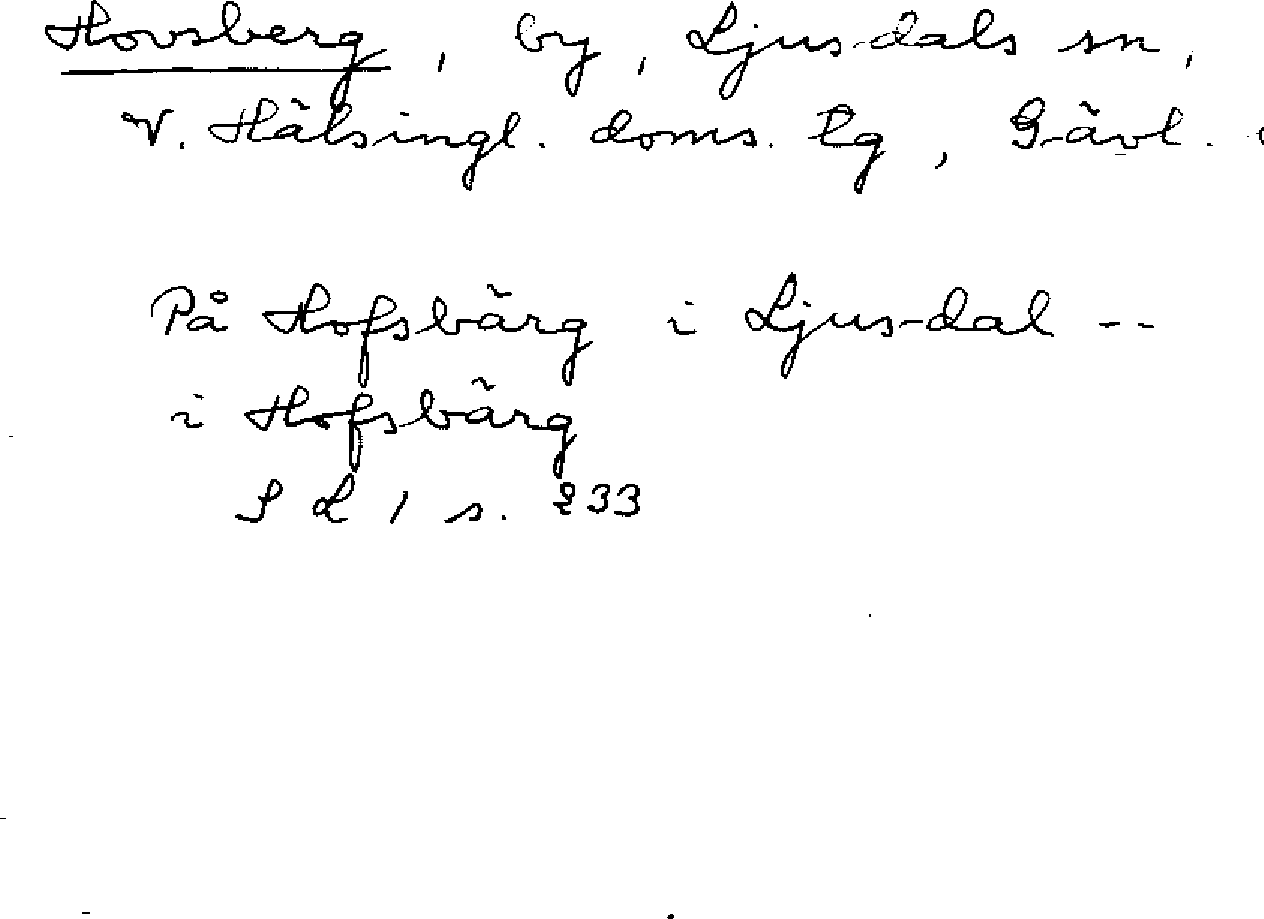 Hovsberg, by, Ljusdals sn,
V. Hälsingl. doms. tg, Gävl.
På Hofsbärg i Ljusdal --
i Hofsbärg
S L 1 s. 233